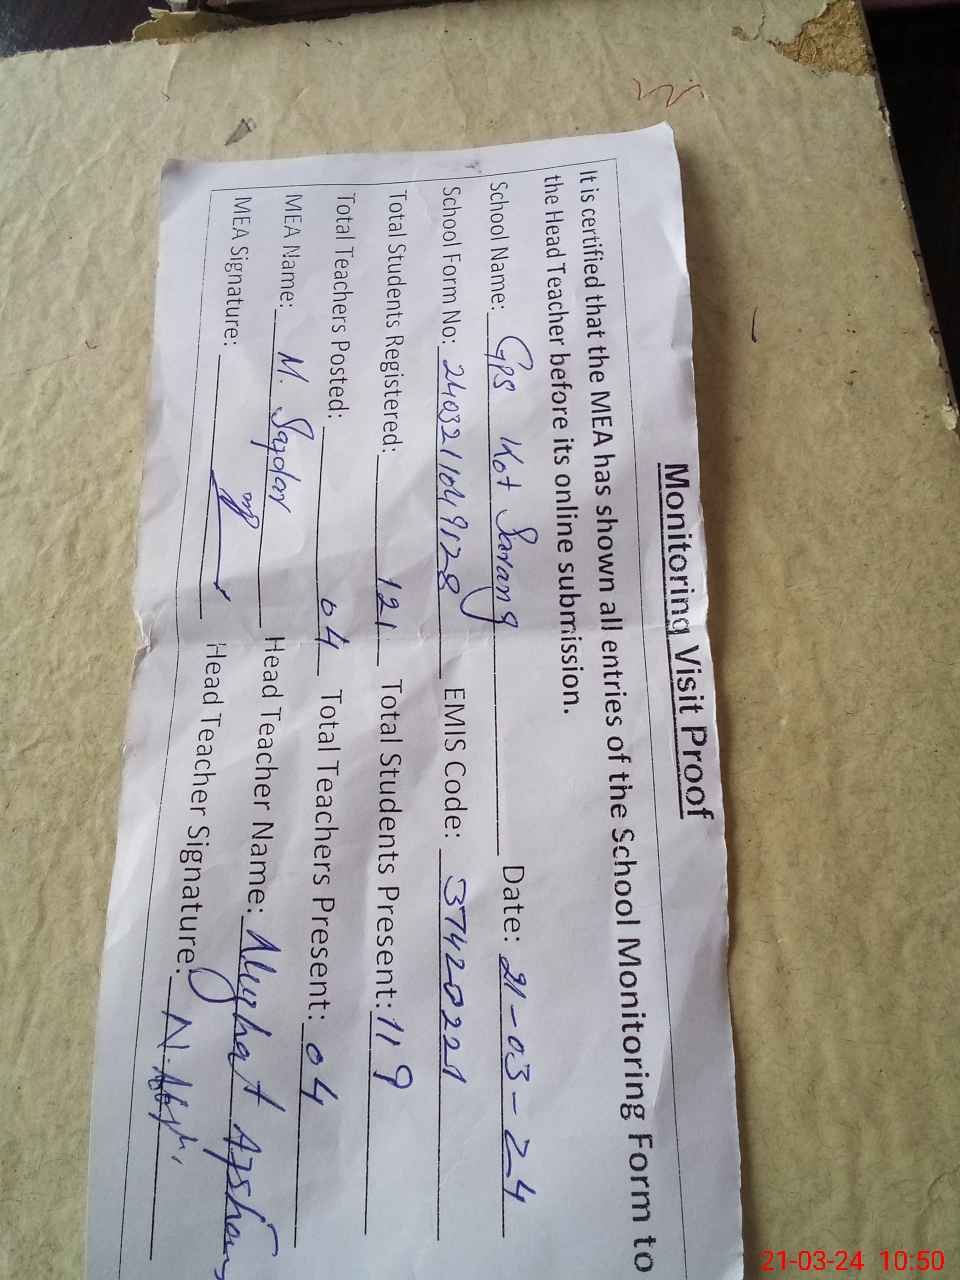 Monitoring Visit Proof
It is certified that the MEA has shown all entries of the School Monitoring Form to
the Head Teacher before its online submission.
School Name: GPS Kot Sarang Date: 21-03-24
School Form No: 2403211049128 EMIS Code: 37420221
Total Students Registered: 121 Total Students Present: 119
Total Teachers Posted: 04 Total Teachers Present: 04
MEA Name: M. Safdar Head Teacher Name:
MEA Signature: Head Teacher Signature:
21-03-24 10:50